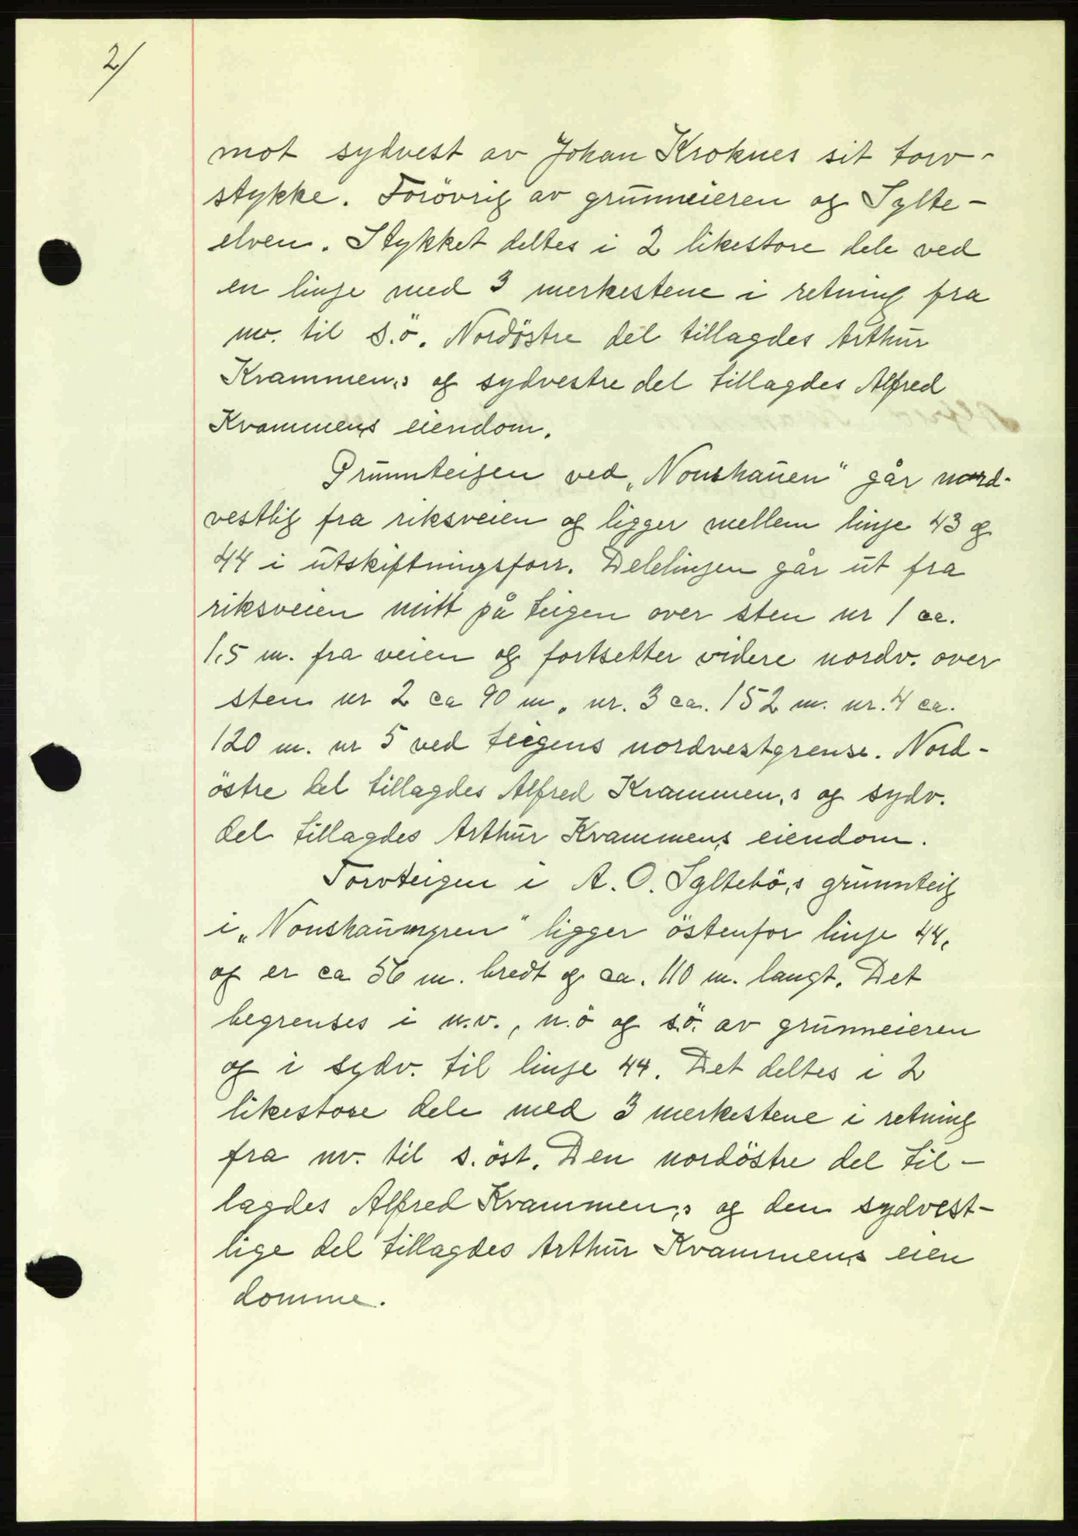 2/
mot sydvest av Johan Kroknes sit torv-
stykke. Forövrig av grunneieren og Sylte-
elven. Stykket deltes i 2 likestore dele ved
en linje med 3 merkestene i retning fra
nv. til s.ö. Nordöstre del tillagdes Arthur
Kvammen,s og sydvestre del tillagdes Alfred
Kvammens eiendom.
Grunnteigen ved „Nonshauen" går nord-
vestlig fra riksveien og ligger mellem linje 43 og
44 i utskiftningsforr. Delelinjen går ut fra
riksveien mitt på teigen over sten nr 1 ca.
1,5 m. fra veien og fortsetter videre nordv. over
sten nr 2 ca 90 m, nr. 3 ca. 152 m. nr. 4 ca.
120 m. nr 5 ved teigens nordvestgrense. Nord-
östre del tillagdes Alfred Kvammen,s og sydv.
del tillagdes Arthur Kvammens eiendom.
Torvteigen i A. O. Syltebö,s grunnteig
i „Nonshaumyren" ligger östenfor linje 44,
og er ca 56 m. bredt og ca. 110 m. langt. Det
begrenses i n.v., n.ö og s.ö. av grunneieren
og i sydv. til linje 44. Det deltes i 2
likestore dele med 3 merkestene i retning
fra nv. til s. öst. Den nordöstre del til-
lagdes Alfred Kvammen,s og den sydvest-
lige del tillagdes Arthur Kvammens eien
domme.